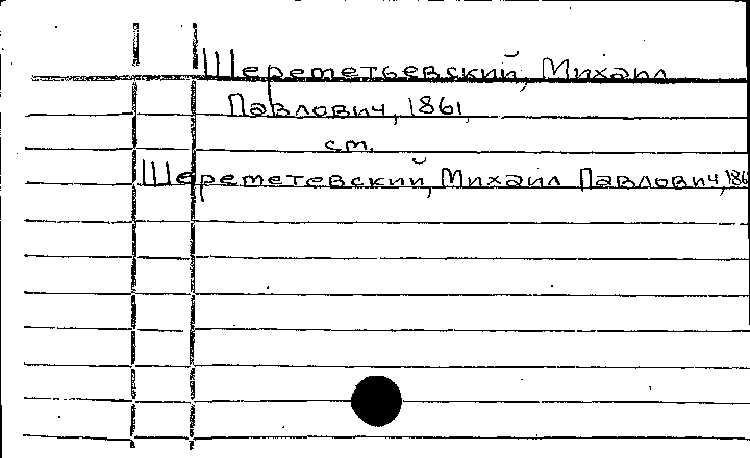 Шереметьевский, Михаил
Павлович, 1861,
ст.
Шереметевский, Михаил Павлович, 186